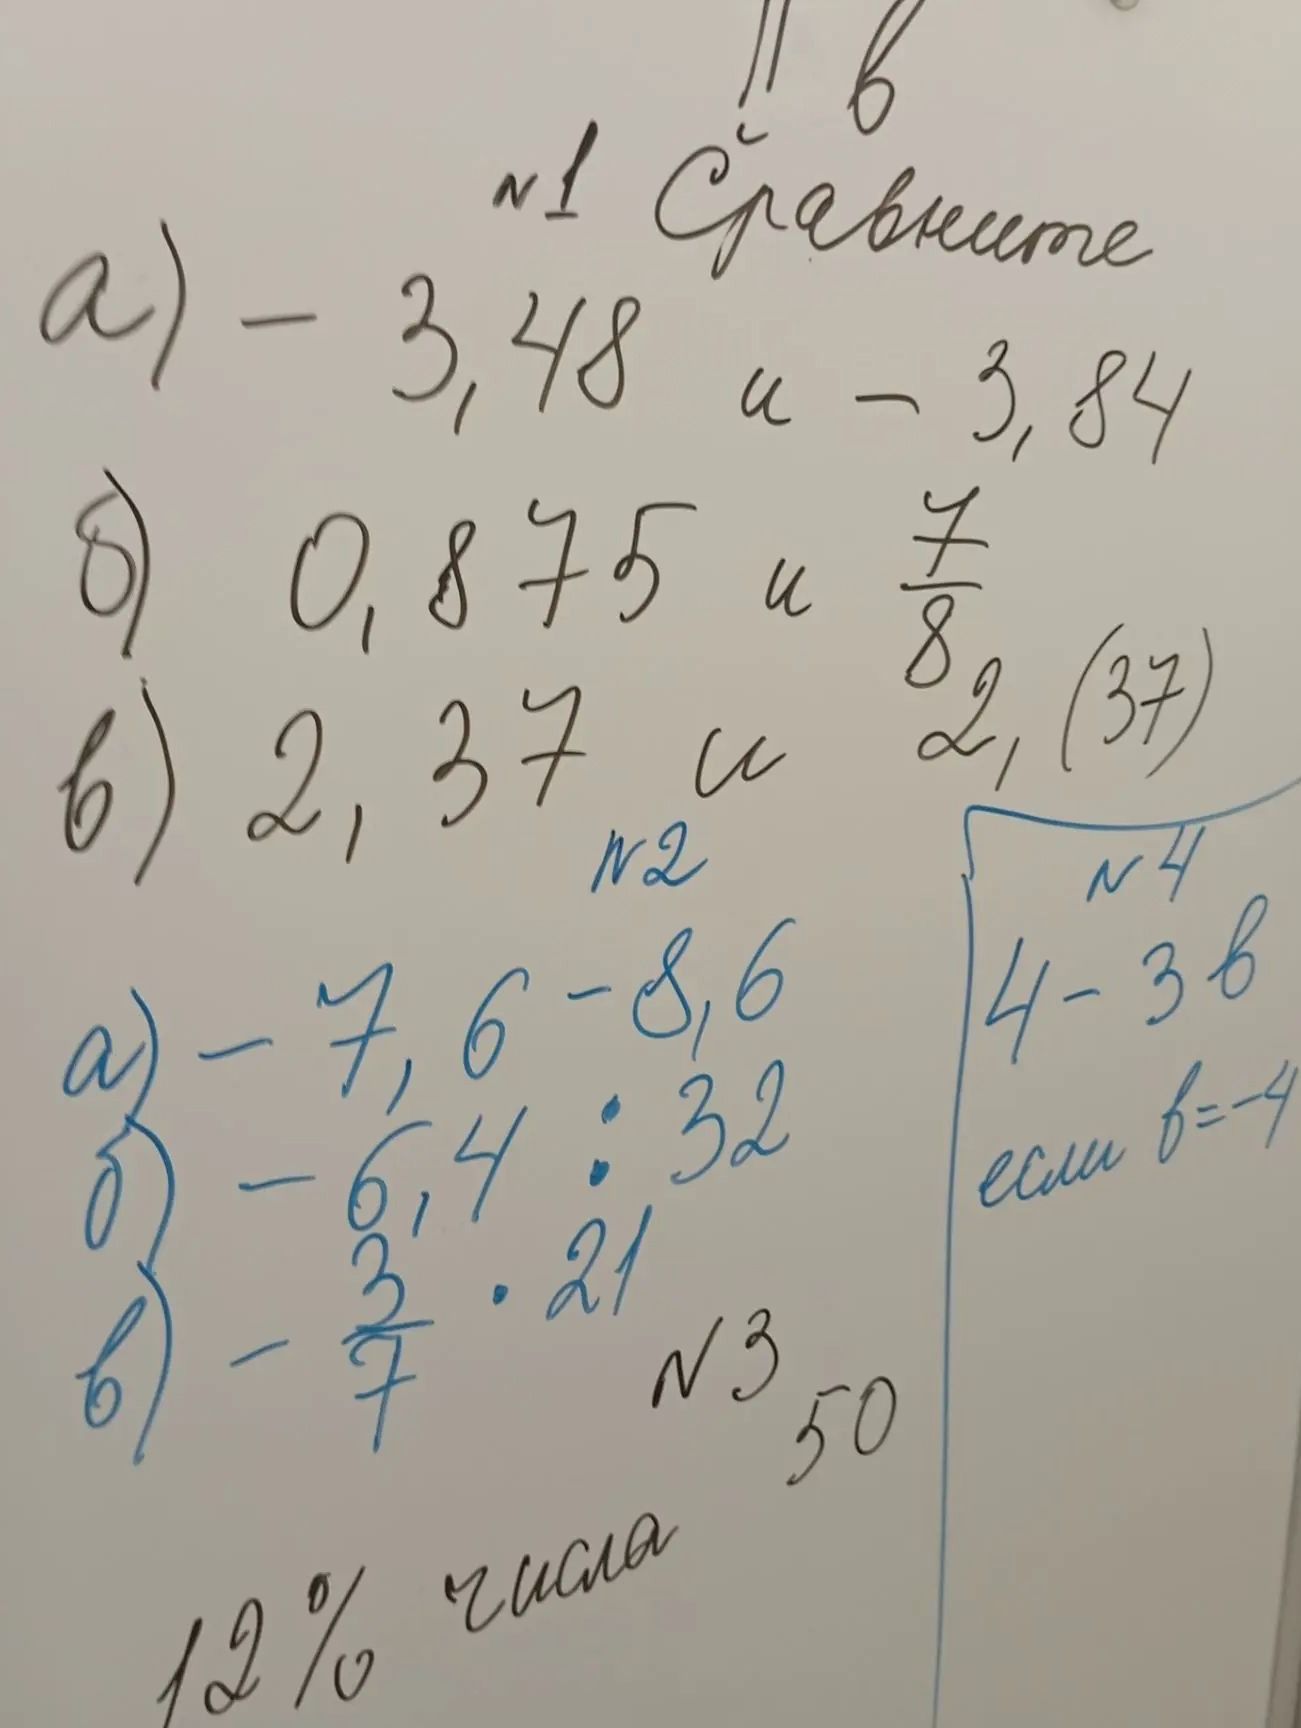 II в
№1 Сравните
а) - 3,48 и - 3,84
б) 0,875 и 7/8
в) 2,37 и 2,(37)
№2
а) - 7,6 - 8,6
б) - 6,4 : 32
в) - 3/7 · 21
№3
12% числа 50
№4
4 - 3в
если в=-4